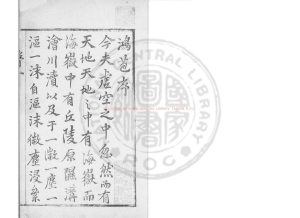 鴻苞序
今夫虛空之中忽然而有
天地天地之中有海嶽而
海嶽中有丘陵原隰溝
澮川瀆以及于一微一塵一
漚一沫自漚沫微塵浸尋
CENTRAL LIBRARY
R.O.C